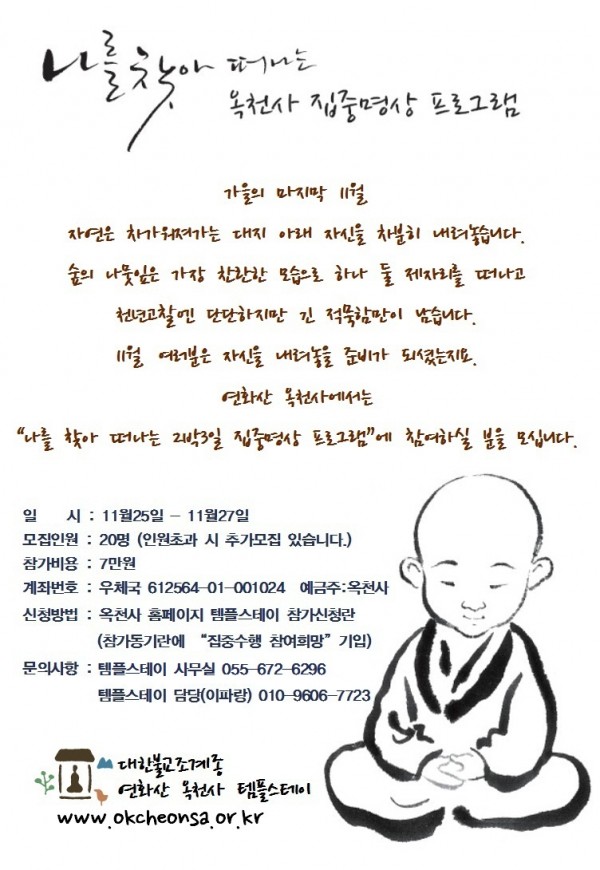 나를 찾아 떠나는
옥천사 집중명상 프로그램
가을의 마지막 11월
자연은 차가워져가는 대지 아래 자신을 차분히 내려놓습니다.
숲의 나뭇잎은 가장 찬란한 모습으로 하나 둘 제자리를 떠나고
천년고찰엔 단단하지만 긴 적묵함만이 남습니다.
11월 여러분은 자신을 내려놓을 준비가 되셨는지요.
연화산 옥천사에서는
“나를 찾아 떠나는 2박3일 집중명상 프로그램”에 참여하실 분을 모십니다.
일 시 : 11월25일 - 11월27일
모집인원 : 20명 (인원초과 시 추가모집 있습니다.)
참가비용 : 7만원
계좌번호 : 우체국 612564-01-001024 예금주:옥천사
신청방법 : 옥천사 홈페이지 템플스테이 참가신청란
(참가동기란에 “집중수행 참여희망” 기입)
문의사항 : 템플스테이 사무실 055-672-6296
템플스테이 담당(이파랑) 010-9606-7723
대한불교조계종
연화산 옥천사 템플스테이
www.okcheonsa.or.kr